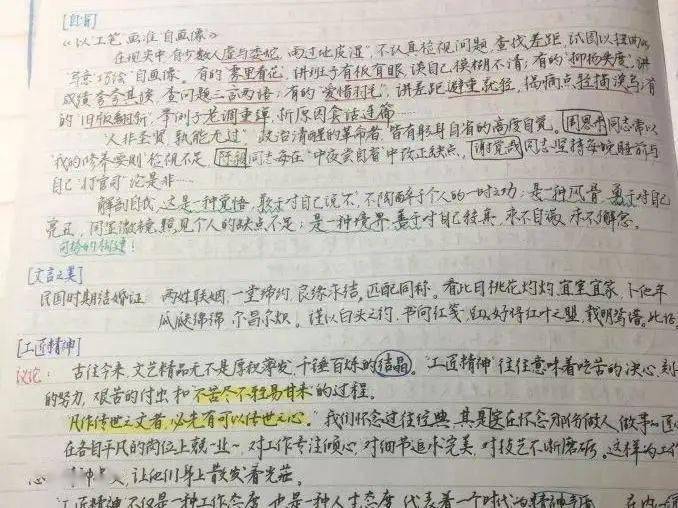 [自省]
《以工笔画准自画像》
在现实中有少数人虚与委蛇,雨过地皮湿",不认真检视问题,查找差距,试图以扭曲的
写意巧绘"自画像。有的"雾里看花",讲班子有板有眼,谈自己模糊不清;有的"抑扬失度",讲
成绩夸夸其谈,查问题三言两语;有的"爱惜羽毛",讲差距避重就轻,揭病点轻描淡写;有
的"旧版翻新",举例子老调重弹,析原因套话连篇……
"人非圣贤,孰能无过" 政治清醒的革命者,皆有躬身自省的高度自觉。周恩来同志常以
"我的修养要则"检视不足,陈毅同志每在"中夜尝自省"中改正缺点,谢觉哉同志坚持每晚睡前与
自己"打官司"论是非…
解剖自我,这是一种觉悟,敢于对自己说"不",不陶醉于个人的一时之功;是一种风骨,勇于对自己
亮丑,用显微镜照见个人的缺点不足;是一种境界,善于对自己较真,来不自欺,未了解念。
可恶的句建!
[文言之美]
民国时期结婚证 两姓联姻,一堂缔约,良缘永结,匹配同称。看此日桃花灼灼,宜室宜家,卜他年
瓜瓞绵绵,尔昌尔炽。谨以白头之约,书向红笺,好将红叶之盟,载明鸳谱。此证
[工匠精神]
议论: 古往今来,文艺精品无不是厚积薄发,千锤百炼的结晶。"工匠精神"往往意味着吃苦的决心,刻
的努力,艰苦的付出和"不苦尽不轻易甘来"的过程。
"凡作传世之文者,必先有可以传世之心。"我们怀念过往经典,其是在怀念那份做人、做事的匠
在各自平凡的岗位上兢一业~,对工作专注倾心,对细节追求完美,对技艺不断磨砺。这样的工
心 人,让他们身上散发着光茫。
工匠精神不仅是一种工作态度,也是一种人生态度,代表着一个时代的精神气质 在内